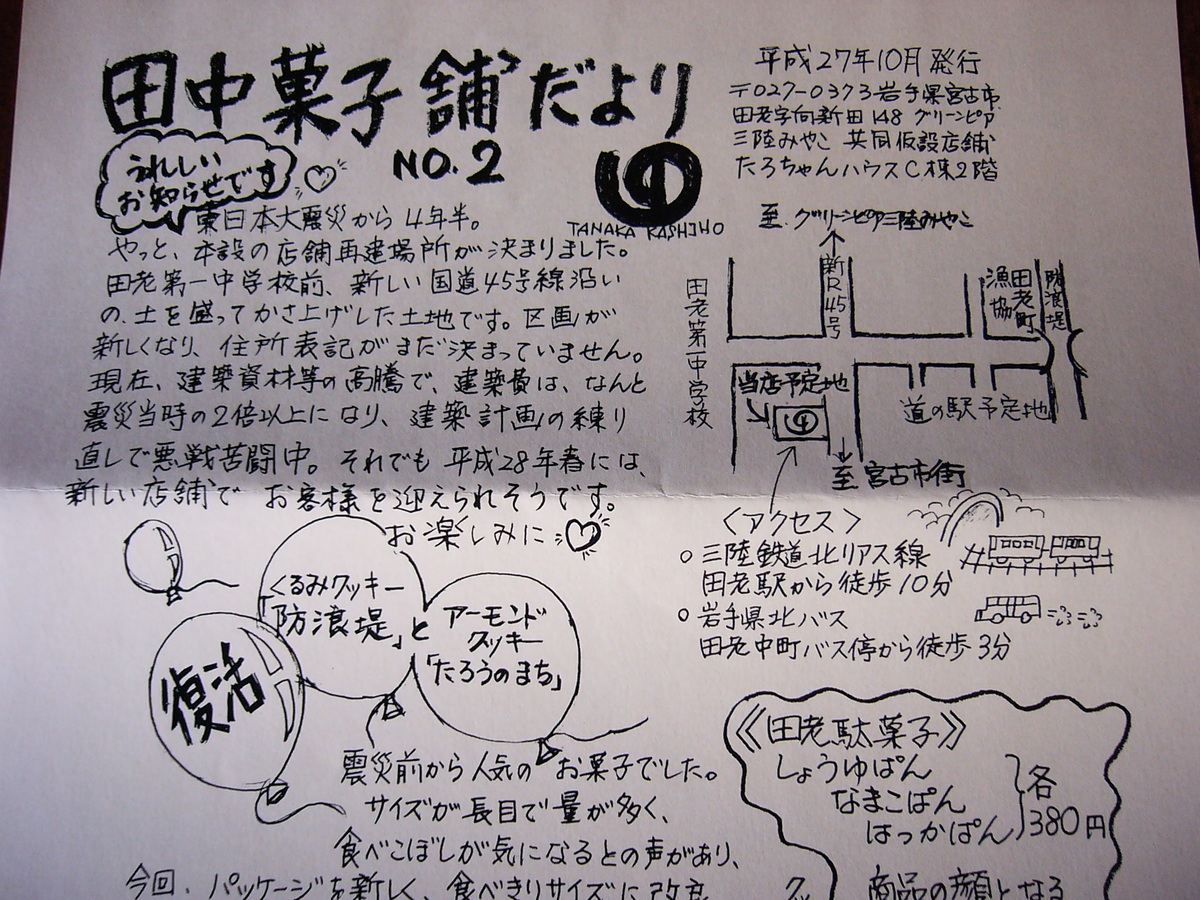 田中菓子舗だより
NO.2
TANAKA KASHIHO
平成27年10月発行
〒027-0373岩手県宮古市
田老字向新田148 グリーンピア
三陸みやこ 共同仮設店舗
たろちゃんハウスC棟2階
うれしい
お知らせです
東日本大震災から4年半。
やっと、本設の店舗再建場所が決まりました。
田老第一中学校前、新しい国道45号線沿い
の、土を盛ってかさ上げした土地です。区画が
新しくなり、住所表記がまだ決まっていません。
現在、建築資材等の高騰で、建築費は、なんと
震災当時の2倍以上になり、建築計画の練り
直しで悪戦苦闘中。それでも平成28年春には、
新しい店舗で お客様を迎えられそうです。
お楽しみに
至 グリーンピア三陸みやこ
新R45号
田老町
漁協
防浪堤
田老第一中学校
当店予定地
道の駅予定地
至 宮古市街
〈アクセス〉
○三陸鉄道北リアス線
田老駅から徒歩10分
○岩手県北バス
田老中町バス停から徒歩3分
復活
くるみクッキー
「防浪堤」と
アーモンド
クッキー
「たろうのまち」
震災前から人気の お菓子でした。
サイズが長目で量が多く、
食べこぼしが気になるとの声があり、
今回、パッケージを新しく、食べきりサイズに改良
《田老駄菓子》
しょうゆぱん
なまこぱん
はっかぱん
各
380円
商品の顔となる